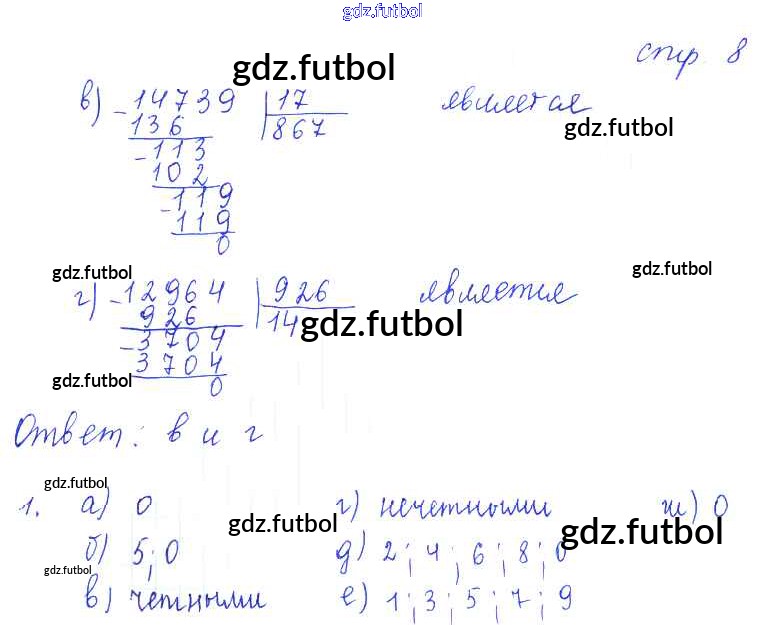 gdz.futbol
стр. 8
gdz.futbol
в) -14739 | 17 является
136 867 gdz.futbol
-113
102
-119
119
0
gdz.futbol gdz.futbol
г) -12964 | 926 является
926 14 gdz.futbol
-3704
3704
gdz.futbol 0
Ответ: в и г
gdz.futbol
1. а) 0 г) нечетными ж) 0
gdz.futbol gdz.futbol
б) 5; 0 д) 2; 4; 6; 8; 0
gdz.futbol
в) четными е) 1; 3; 5; 7; 9